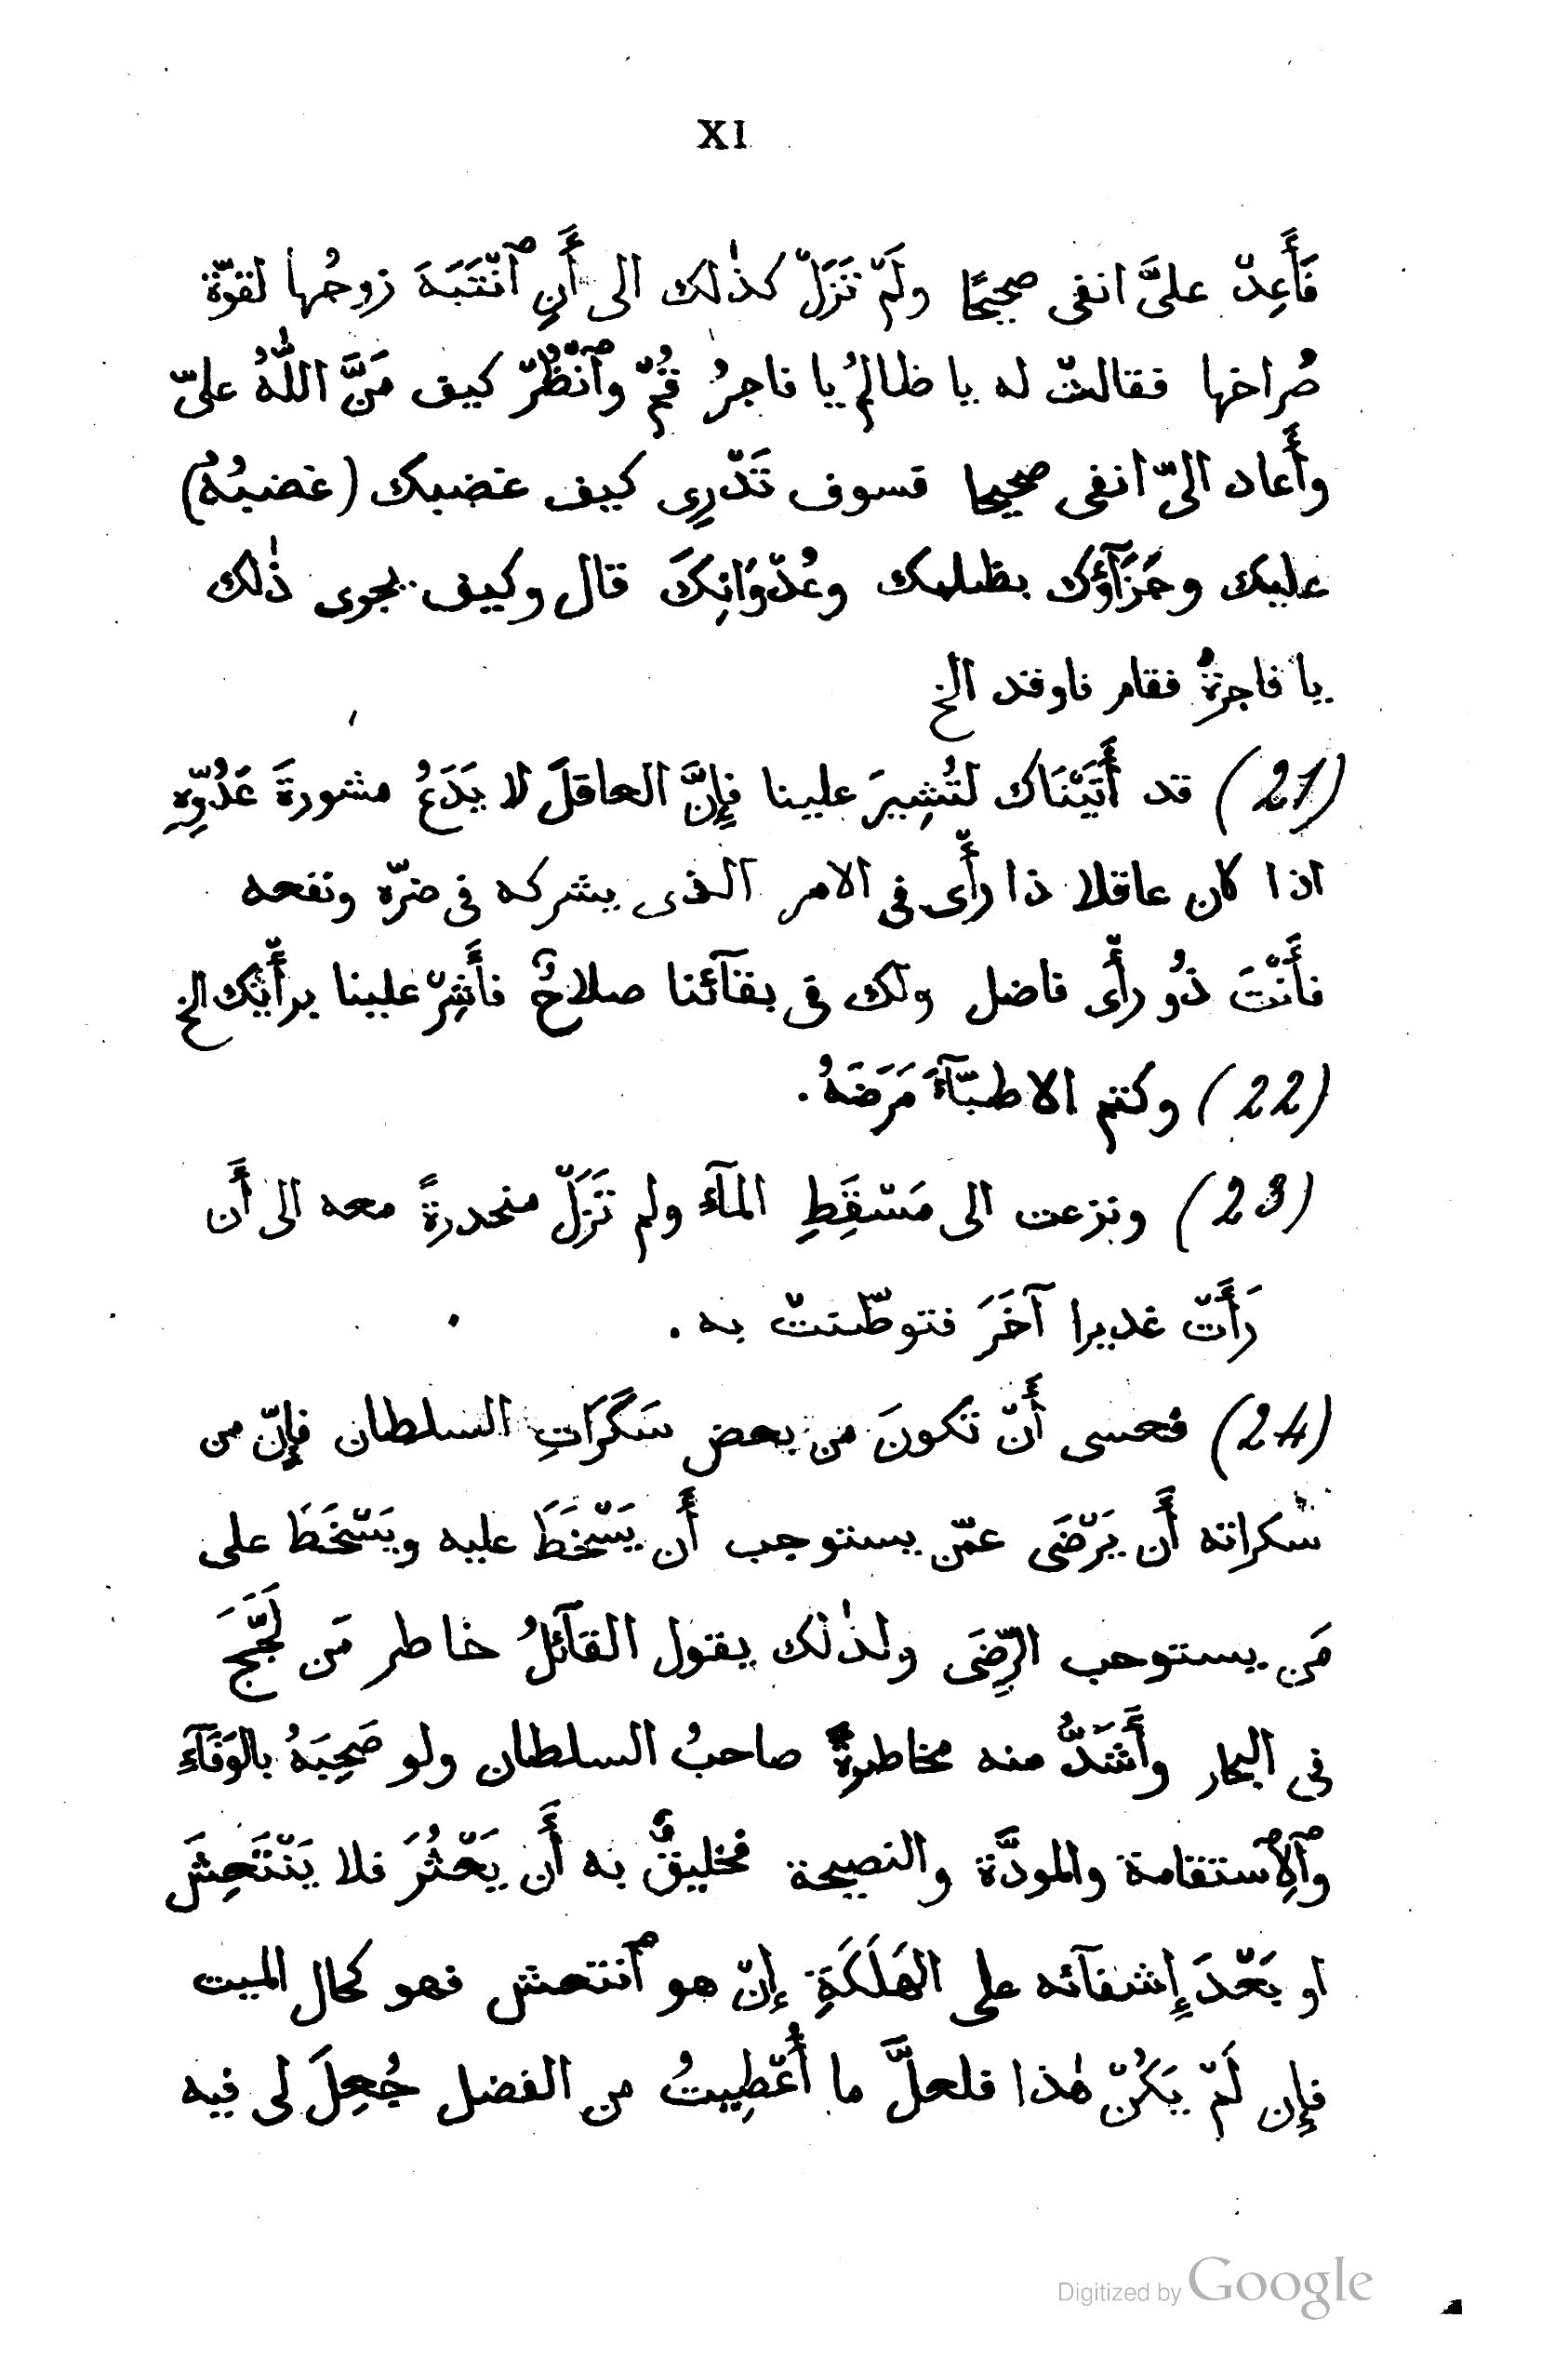 XI
فَأَعِدْ علىَّ انفى صحيحًا ولَمْ تَزَلْ كذٰلك الى أَنِ ٱنْتَبَهَ زوجُها لقوّة
صُراخها فقالتْ له يا ظالمُ يا فاجرُ قُمْ وٱنْظُرْ كيف مَنَّ اللّٰهُ علىّ
وأَعاد الىّ انفى صحيحا فسوف تَدْرِى كيف غضبك (غضبُهُ)
عليك وجَزَآؤُك بظلمك وعُدْوَانِكَ قال وكيف يجوى ذٰلك
يا فاجرةُ فقام فاوقد الخ
(21) قد أَتَيْنَاك لتُشِيرَ علينا فإِنَّ العاقلَ لا يَدَعُ مشورةَ عَدُوِّهِ
اذا كان عاقلا ذا رأْى فى الامر الذى يشركه فى ضرّه ونفعه
فأَنْتَ ذُو رأْى فاضل ولك فى بقآئنا صلاحٌ فأَشِرْ علينا برأْيك الخ
(22) وكتم الاطبّآءَ مَرَضَهُ.
(23) ونزعت الى مَسْقَِطِ المآء ولم تَزَلْ منحدرةً معه الى أَن
رَأَتْ غديرا آخَرَ فتوطّنتْ به.
(24) فعسى أَنْ تكونَ من بعض سَكَرَاتِ السلطان فإِنّ من
سكراته أَن يَرْضَى عمّن يستوجب أَن يَسْخَطَ عليه ويَسْخَطَ على
مَن يستوجب الرِّضَى ولذٰلك يقول القآئلُ خاطر مَن لَجَّجَ
فى البحار وأَشَدُّ منه مخاطرةً صاحبُ السلطان ولو صَحِبَهُ بالوَفَآء
وٱلِٱستقامة والمودَّة والنصيحة فخليقٌ به أَن يَعْثُرَ فلا يَنْتَعِشَ
او بَعْدَ إِشفآئه على الهَلَكَةِ إِنْ هو ٱنتعش فهو كحال الميت
فإِن لَمْ يَكُنْ هٰذا فلعلَّ ما أُعْطِيتُ من الفضل جُعِلَ لى فيه
Digitized by Google